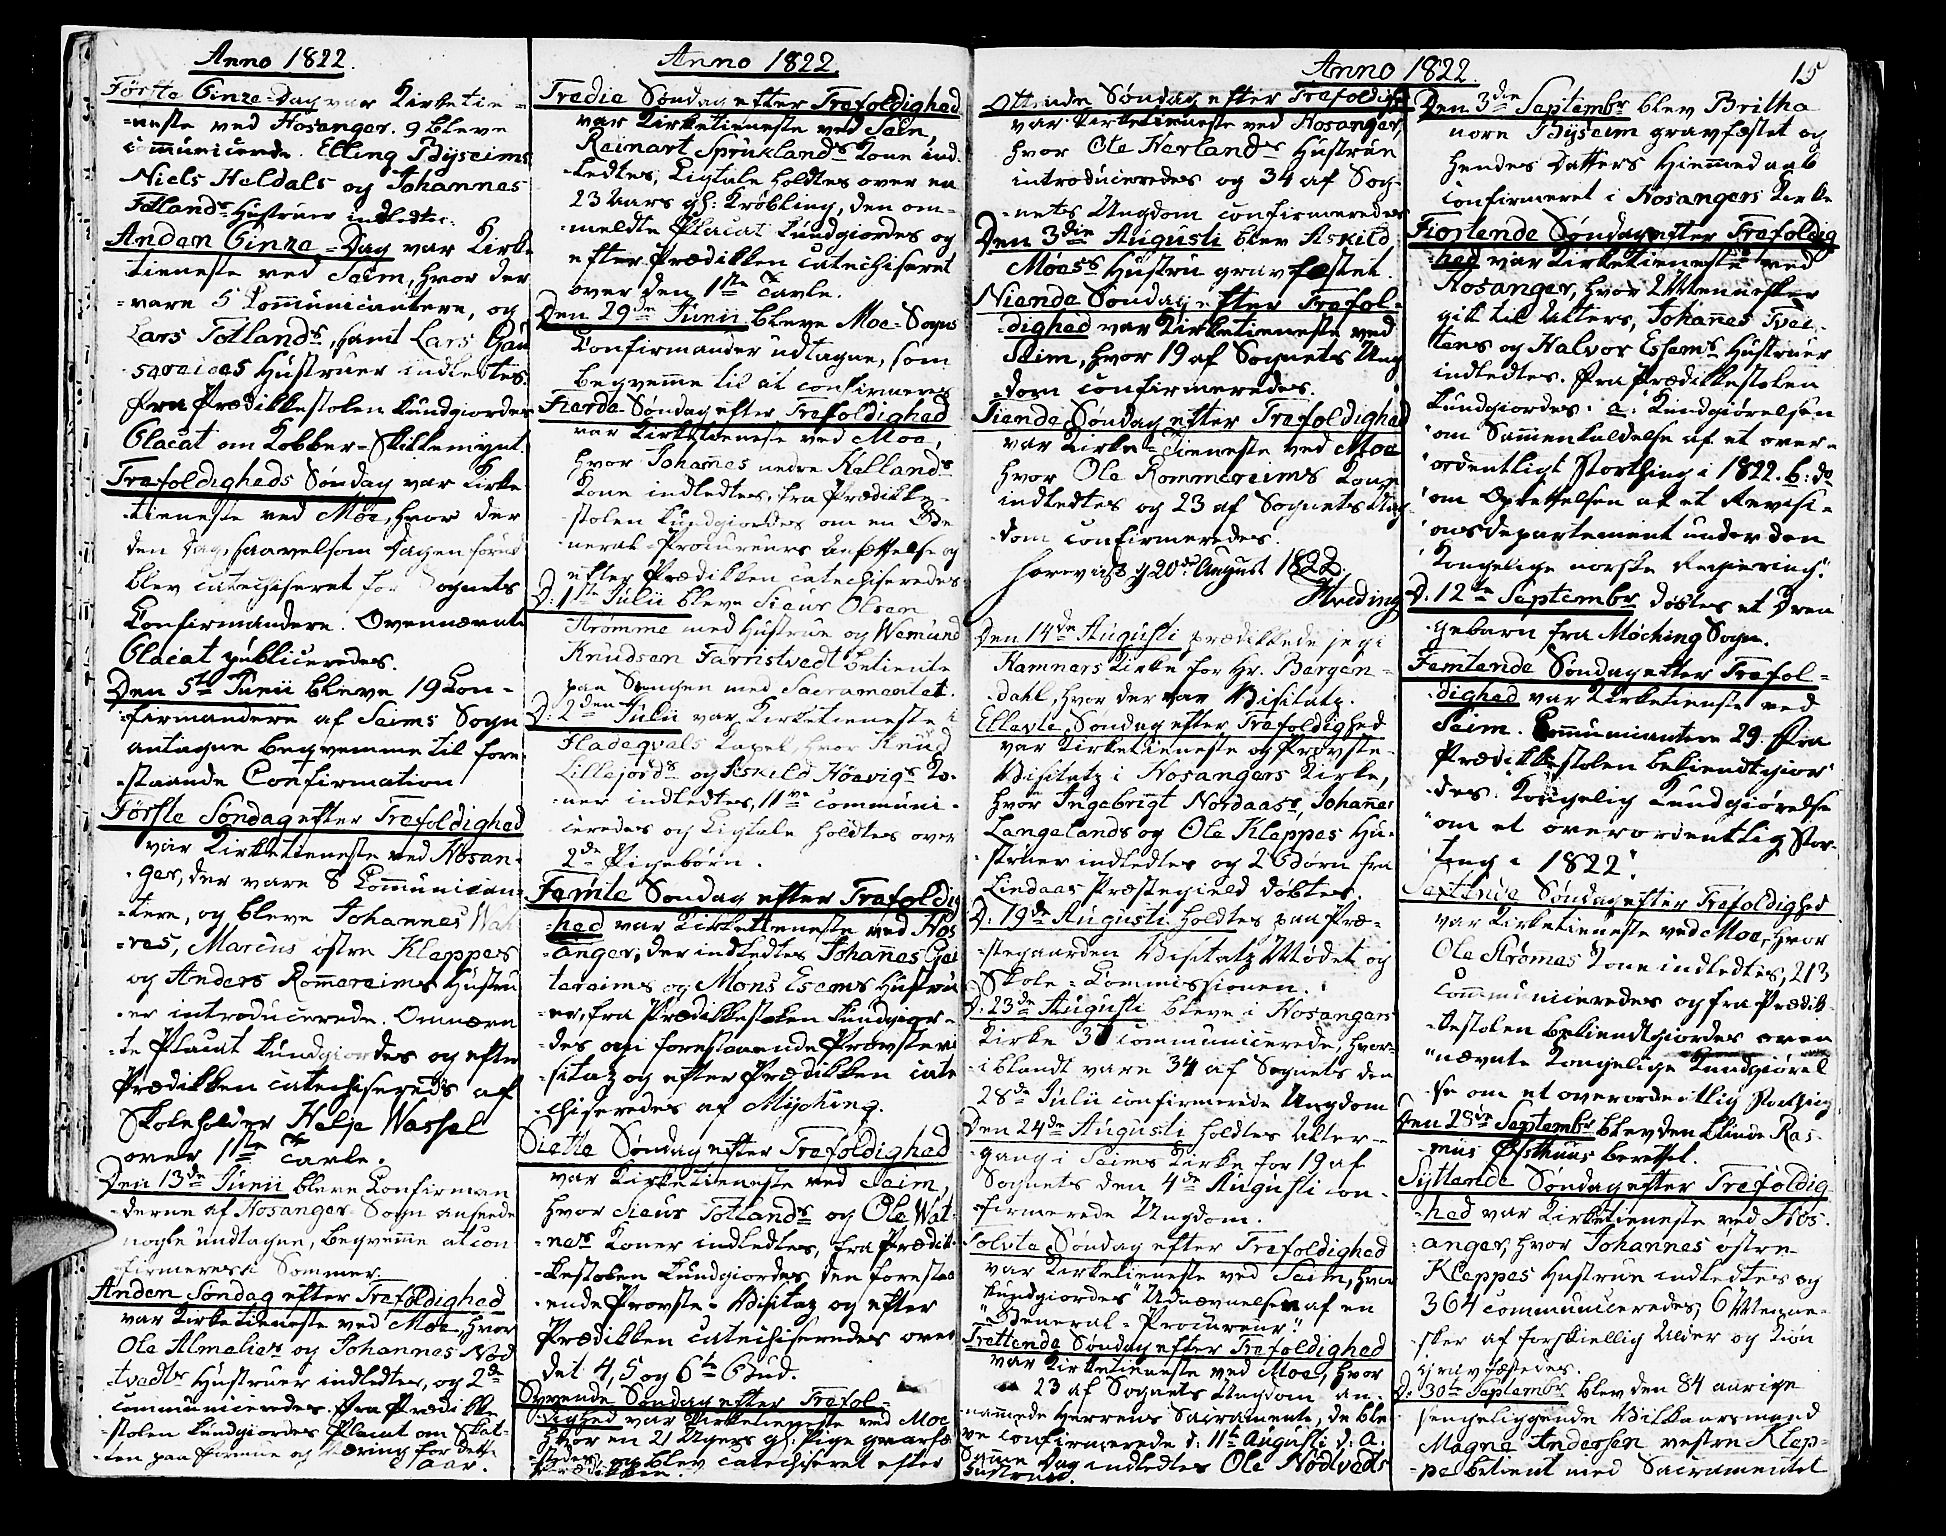 Anno 1822.
Første Pinze-Dag var Kirketie-
-neste ved Hosanger. 9 bleve
communicerede. Elling Byseims
Niels Heldals og Johannes
Totlands Hustruer indledte.
Anden Pinze-Dag var Kirke
tieneste ved Seim, hvor der
-vare 5 Communicantere, og
Lars Totlands, samt Lars
Hustruer indledtes.
Fra Prædikestolen kundgiordes
Placat om Kobber-Skillemynt.
Trefoldigheds Søndag var Kirke
-tieneste ved Moe, hvor der
den Dag, saavelsom Dagen forud
blev catechiseret for Sognets
Confirmandere. Ovennævnte
Placat publiceredes.
Den 5te Junii bleve 19 Con-
-firmandere af Seims Sogn
antagne beqvemme til fore-
-staaende Confirmation
Første Søndag efter Trefoldighed
var Kirketieneste ved Hosan-
-ger, der vare 8 Communican-
-tere, og bleve Johannes
Marcus østre Kleppes
og Anders Rommereims Hustru
-er introducerede. Omnævn
-te Placat kundgiordes og efter
Prædikken catechiseredes af
Skoleholder Helje Wassel
over 1ste Tavle.
Den 13de Junii bleve Confirman
-derne af Hosanger Sogn
nogle undtagne, beqvemme at con
-firmeres i Sommer.
Anden Søndag efter Trefoldighed
var Kirketieneste ved Moe, hvor
Ole Almelies og Johannes Nød
tvedts Hustruer indledtes, og 2de
communiceredes. Fra Prædikke
-stolen kundgiordes Placat om Skat-
-ten paa Formue og Næring for dette
Aar.
Anno 1822.
Tredie Søndag efter Trefoldighed
var Kirketieneste ved Seim,
Reinart Sprucklands Kone ind-
-ledtes, Ligtale holdtes over en
23 Aars gl: Krøbling, den om-
-meldte Placat kundgiordes og
efter Prædikken catechiseret
over den 1ste Tavle.
Den 29de Junii bleve Moe-Sogns
Confirmander udtagne, som
beqvemme til at confirmeres
Fierde Søndag efter Trefoldighed
var Kirketieneste ved Moe,
hvor Johannes nedre Kellands
Kone indledtes, fra Prædikke-
-stolen kundgiordes om en Ge
-neral-Procureurs Ansættelse og
efter Prædikken catechiseredes
D: 1ste Julii bleve Sieur Olsen
Strømme med Hustrue og Wemund
Knudsen Farristvedt betiente
paa Sengen med Sacramentet.
D: 2den Julii var Kirketieneste i
Fladeqvals Kapel, hvor Knud
Lillejords og Askild Høevigs Ko-
-ner indledtes, 11ve communi-
-ceredes og Ligtale holdtes over
2de Pigebørn.
Femte Søndag efter Trefoldig
-hed var Kirketieneste ved Hos
-anger, der indledtes Johannes
tereims og Mons Esems Hustru
-er, fra Prædikkestolen kundgior-
-des om forestaaende Provstevi
-sitaz og efter Prædikken cate
-chiseredes af Myching.
Siette Søndag efter Trefoldighed
var Kirketieneste ved Seim,
hvor Sieur Totlands og Ole Wat-
-nes Koner indledtes, fra Prædik-
-kestolen kundgiordes den forestaa
-ende Provste-Visitaz og efter
Prædikken catechiseredes over
det 4, 5 og 6te Bud.
Syvende Søndag efter Trefol-
-dighed var Kirketieneste ved Moe
hvor en 21 Ugers gl: Pige gravfæ
-stedes, og blev catechiseret efter
Prædikken.
Anno 1822.
15
Ottende Søndag efter Trefoldigh
var Kirketieneste ved Hosanger,
hvor Ole Herlands Hustrue
introduceredes og 34 af Sog-
-nets Ungdom confirmeredes
Den 3die Augusti blev Askild
Moes Hustru gravfæstet.
Niende Søndag efter Trefol-
-dighed var Kirketieneste ved
Seim, hvor 19 af Sognets Ung
-dom confirmeredes.
Tiende Søndag efter Trefoldighed
var Kirke-Tieneste ved Moe
hvor Ole Rommereims Kone
indledtes og 23 af Sognets Ung
-dom confirmeredes.
Forevist d 20de August 1822.
Hveding
Den 14de Augusti prædikkede jeg i
Hammers Kirke for Hr. Bergen-
-dahl, hvor der var Visitatz.
Ellevte Søndag efter Trefoldighed
var Kirketieneste og Provste-
Visitatz i Hosangers Kirke,
hvor Ingebrigt Nordaas, Johannes
Langelands og Ole Kleppes Hu-
-struer indledtes og 2 Børn fra
Lindaas Præstegield døbtes.
D: 19de Augusti holdtes paa Præ-
-stegaarden Visitatz Mødet og
Skole-Commissionen.
D: 23de Augusti bleve i Hosangers
Kirke 37 communicerede, hvor-
-iblandt vare 34 af Sognets den
28de Julii confirmerede Ungdom
Den 24de Augusti holdtes Alter-
-gang i Seims Kirke for 19 af
Sognets den 4de Augusti con-
-firmerede Ungdom.
Tolvte Søndag efter Trefoldighed
var Kirketieneste ved Seim, hvor
kundgiordes "Udnævnelsen af en
"General-Procureur."
Trettende Søndag efter Trefoldighed
var Kirketieneste ved Moe, hvor
23 af Sognets Ungdom, an-
-nammede Herrens Sacramente, de ble
ve confirmerede d: 11te Augusti d: A:
Samme Dag indledtes Ole Nødtvedts
Hustrue.
Den 3die Septembr blev Britha
nore Byseim gravfæstet og
hendes Datters Hiemmedaab
confirmeret i Hosangers Kirke
Fiortende Søndag efter Trefoldig
-hed var Kirketieneste ved
Hosanger, hvor 2 Mennesker
gik til Alters, Johannes Tvei-
-tens og Halvor Essems Hustruer
indledtes. Fra Prædikkestolen
kundgiordes: a: "Kundgiørelsen
"om Sammenkaldelse af et over-
"ordentligt Storthing i 1822. b: do
"om Oprettelsen af et Revisi-
"onsdepartement under den
"Kongelige norske Regiering."
D: 12te Septembr døbtes et Dren
gebarn fra Møching Sogn.
Femtende Søndag efter Trefol-
-dighed var Kirketieneste ved
Seim. Communicantere 29. Fra
Prædikkestolen bekiendtgior
-des "Kongelig Kundgiørelse
"om et overordentlig Stor-
"ting i 1822."
Sextende Søndag efter Trefoldighed
var Kirketieneste ved Moe, hvor
Ole Strømes Kone indledtes, 213
communiceredes og fra Prædik-
-kestolen bekiendtgiordes oven
"nævnte Kongelige Kundgiørel
-se om et overordentlig Storthing
Den 28de Septembr blev den blinde Ras-
-mus Øfsthuus berettet.
Syttende Søndag efter Trefoldig-
-hed var Kirketieneste ved Hos-
-anger, hvor Johannes østre
Kleppes Hustrue indledtes og
364 communiceredes, 6 Menne-
-sker af forskiellig Alder og Kiøn
gravfæstedes.
D: 30te Septembr blev den 84 aarige
sengeliggende Vilkaarsmand
Magne Andersen vestre Klep-
-pe betient med Sacramentet